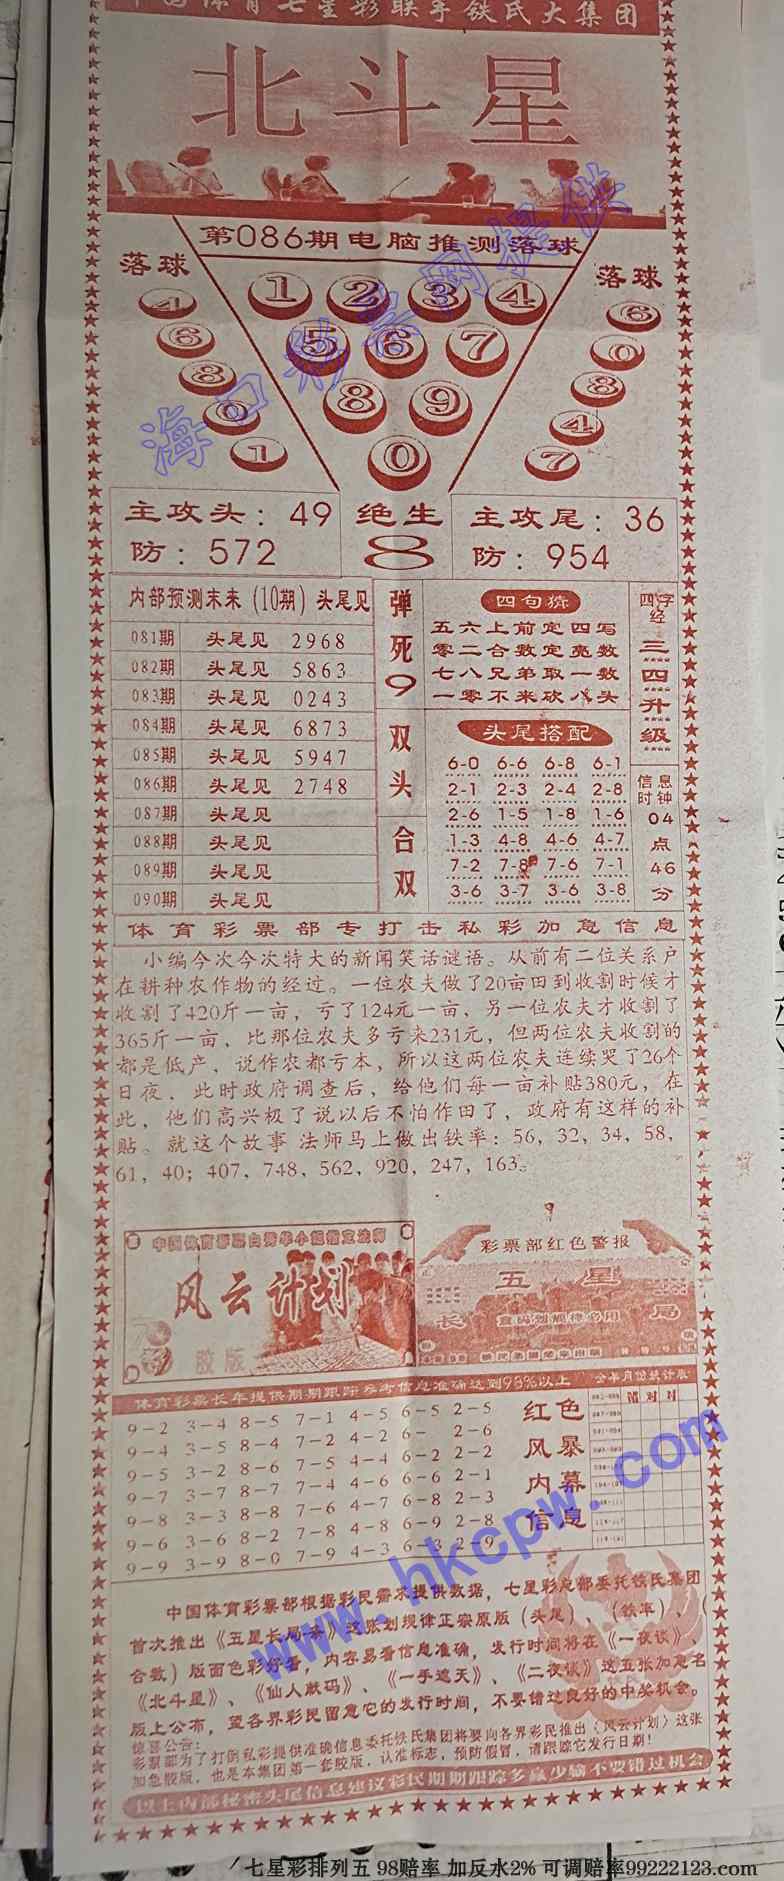 中国体育七星彩联手铁氏大集团
北斗星
第086期电脑推测落球
落球
落球
1 2 3 4
5 6 7
8 9
0
4
6
8
0
1
6
0
8
4
7
主攻头: 49
防: 572
绝生
8
主攻尾: 36
防: 954
内部预测末来 (10期) 头尾见
081期 头尾见 2968
082期 头尾见 5863
083期 头尾见 0243
084期 头尾见 6873
085期 头尾见 5947
086期 头尾见 2748
087期 头尾见
088期 头尾见
089期 头尾见
090期 头尾见
弹死9
双头
合双
四句猜
五六上前定四写
零二合数定亮数
七八兄弟取一数
一零不来砍八头
头尾搭配
6-0 6-6 6-8 6-1
2-1 2-3 2-4 2-8
2-6 1-5 1-8 1-6
1-3 4-8 4-6 4-7
7-2 7-8 7-6 7-1
3-6 3-7 3-6 3-8
四字经
三四升级
信息时钟
04
点
46
分
体育彩票部专打击私彩加急信息
小编今次今次特大的新闻笑话谜语。从前有二位关系户
在耕种农作物的经过。一位农夫做了20亩田到收割时候才
收割了420斤一亩，亏了124元一亩，另一位农夫才收割了
365斤一亩，比那位农夫多亏来231元，但两位农夫收割的
都是低产，说作农都亏本，所以这两位农夫连续哭了26个
日夜，此时政府调查后，给他们每一亩补贴380元，在
此，他们高兴极了说以后不怕作田了，政府有这样的补
贴。就这个故事 法师马上做出铁率：56，32，34，58，
61，40；407，748，562，920，247，163。
风云计划
胶版
彩票部红色警报
五星
长 局
体育彩票长年提供期期跟踪参考信息准确达到98%以上
9-2 3-4 8-5 7-1 4-5 6-5 2-5
9-4 3-5 8-4 7-2 4-2 6- 2-6
9-5 3-2 8-6 7-5 4-4 6-2 2-2
9-7 3-7 8-7 7-4 4-6 6-6 2-1
9-8 3-3 8-8 7-6 4-7 6-8 2-3
9-6 3-6 8-2 7-8 4-8 6-9 2-8
9-9 3-9 8-0 7-9 4-3 6-3 2-9
红色
风暴
内幕
信息
错 对 对
中国体育彩票部根据彩民需求提供数据，七星彩总部委托铁氏集团
首次推出《五星长局条》这张划规律正宗原版（头尾）、（铁率）、（
合数）版面色彩好看，内容易看信息准确，发行时间将在《一夜谈》、
《北斗星》、《仙人献码》、《一手遮天》、《二夜谈》这五张加急名
版上公布，望各界彩民留意它的发行时间，不要错过良好的中奖机会。
惊喜公告:
彩票部为了打倒私彩提供准确信息委托铁氏集团将要向各界彩民推出《风云计划》这张
加急胶版，也是本集团第一套胶版，认准标志，预防假冒，请跟踪它发行日期！
以上内部秘密头尾信息建议彩民期期跟踪多赢少输不要错过机会
海口彩票网提供
www.hkcpw.com
七星彩排列五 98赔率 加反水2% 可调赔率99222123.com